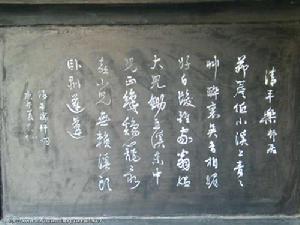 清平樂 村居
茅簷低小溪上青青
草醉裏吳音相媚
好白髮誰家翁媪
大兒鋤豆溪東中
兒正織鷄籠最
喜小兒無賴溪頭
卧剥蓮蓬